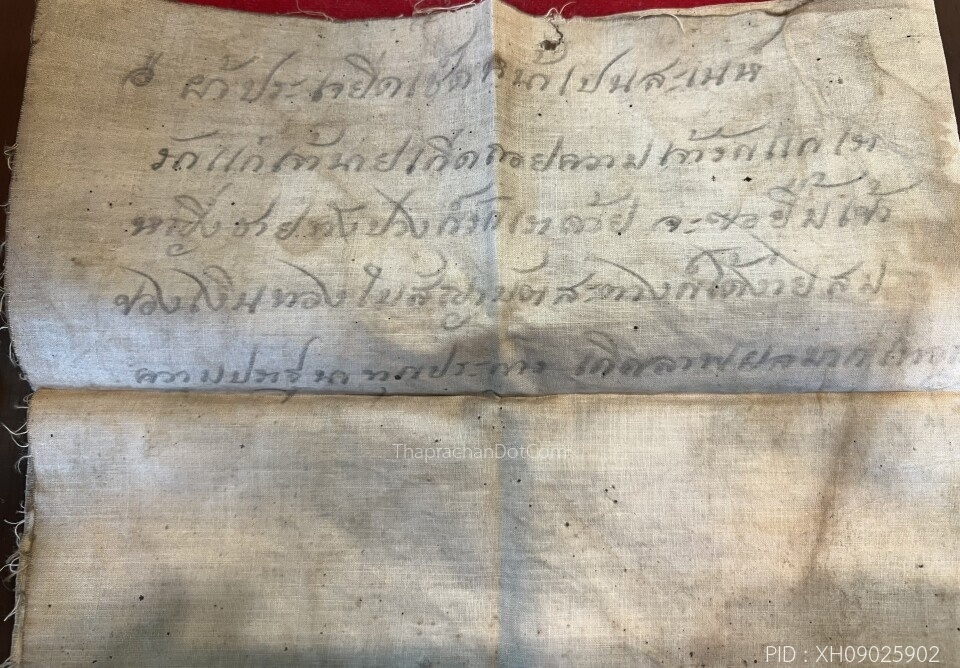 ๏ ผ้าประเจยีดเช็ดหน้าเปนสะเนห์
รักแก่เจ้านายเกิดถอยความเจ้ารักแกเรา
หญิงชายทังปวงก็รักเราด้วย จะขอยืมเข้า
ของเงินทองใบสัญาบัต สะตางก็ได้ง่าย สม
ความปราฐนาทุกประการ เกิดลาพผลมาก
ThaprachanDotCom
PID : XH09025902